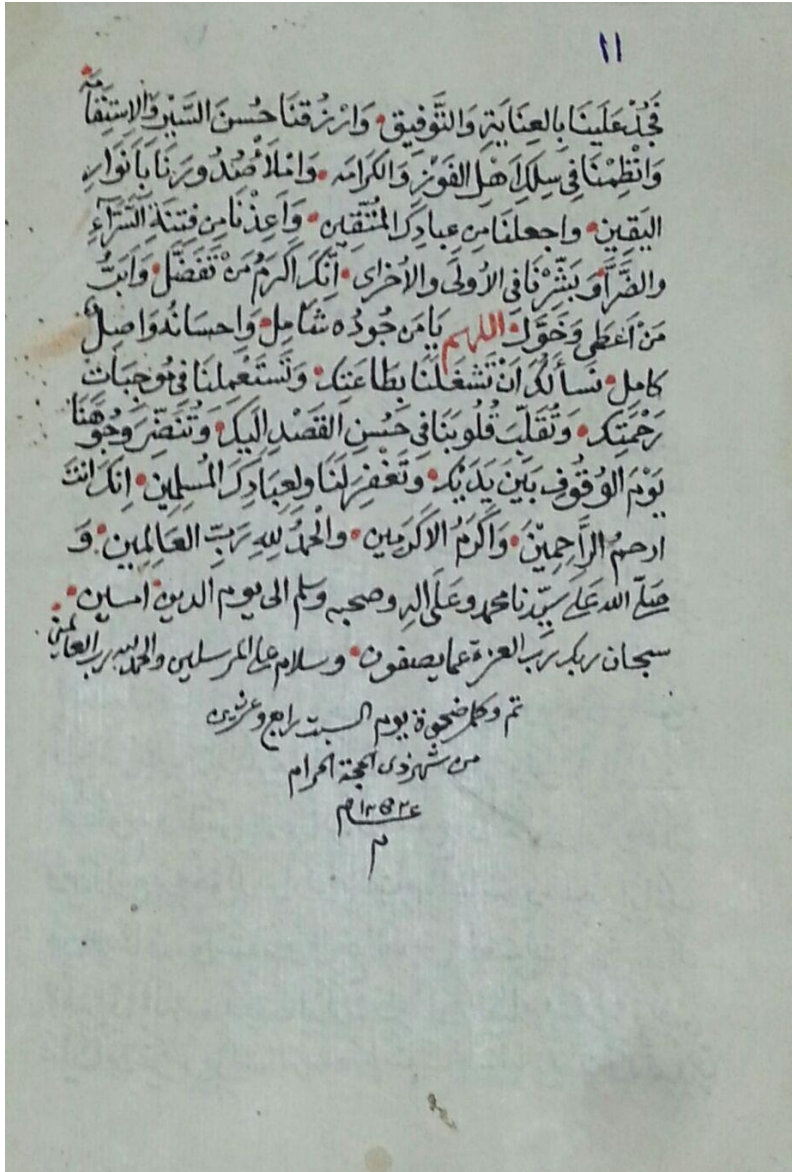 ١١
فَجُدْ عَلَينَا بِالعِنَايَةِ وَالتَّوفِيقِ • وَارْزُقنَا حُسنَ السَّيْرِ وَالاِستِقَامَه •
وَانْظِمْنَا فِي سِلكِ اَهْلِ الفَوْزِ وَالكَرَامَه • وَامْلَأْ صُدُورَنَا بِأَنوَارِ
اليَقِينِ • واجعلنَا مِن عِبادِكَ المُتَّقِين • وَاَعِذْنَا مِن فِتنَةِ السَّرَّآءِ
والضَّرَّا • وَبَشِّرْنَا فِي الاُولَى والاُخرَاى • اِنَّكَ اَكرَمُ مَنْ تَفَضَّلَ • وَاَبَرُّ
مَنْ اَعطَى وَخَوَّلَ • اللهم يَا مَن جُودُه شَامِل • وَاِحسَانُه وَاصِلٌ
كامِل • نَسأَلُكَ اَنْ تَشغَلَنَا بِطَاعَتِكَ • وَتَستَعْمِلنَا فِي مُوجِبَاتِ
رَحْمَتِكَ • وَتُقَلِّبَ قُلُوبَنَا فِي حُسنِ القَصْدِ اِلَيكَ • وَتُنَضِّرَ وُجُوهَنَا
يَوْمَ الوُقُوفِ بَيْنَ يَدَيْكَ • وَتَغْفِرَ لَنَا ولِعِبَادِكَ المُسلِمِين • اِنَكَ انتَ
ارحمُ الرَّاحِمِيْنَ • وَاَكرَمُ الاَكرَمِين • والْحَمْدُ لِلهِ رَبِّ العَالمِين • وَ
صَلَّ الله عَلَى سَيِّدنا محمد وعَلَى اله وصحبه وسلم الى يوم الدين • امين •
سبحان ربك رب العزة عما يصفون • وسلام على المرسلين والحمد لله رب العالمين
تم وكمل ضحوة يوم السبت رابع وعشرين
من شهر ذى الحجة الحرام
م